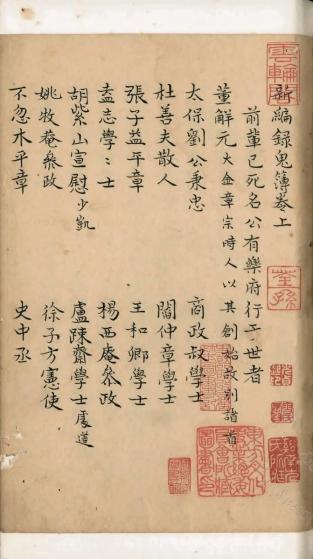 新編録鬼簿卷上
前輩已死名公有樂府行于世者
董解元大金章宗時人以其創始故列諸首
太保劉公秉忠 商政叔學士
杜善夫散人 閻仲章學士
張子益平章 王和卿學士
盍志學〻士 楊西庵叅政
胡紫山宣慰少凱 盧踈齋學士處道
姚牧菴叅政 徐子方憲使
不忽木平章 史中丞